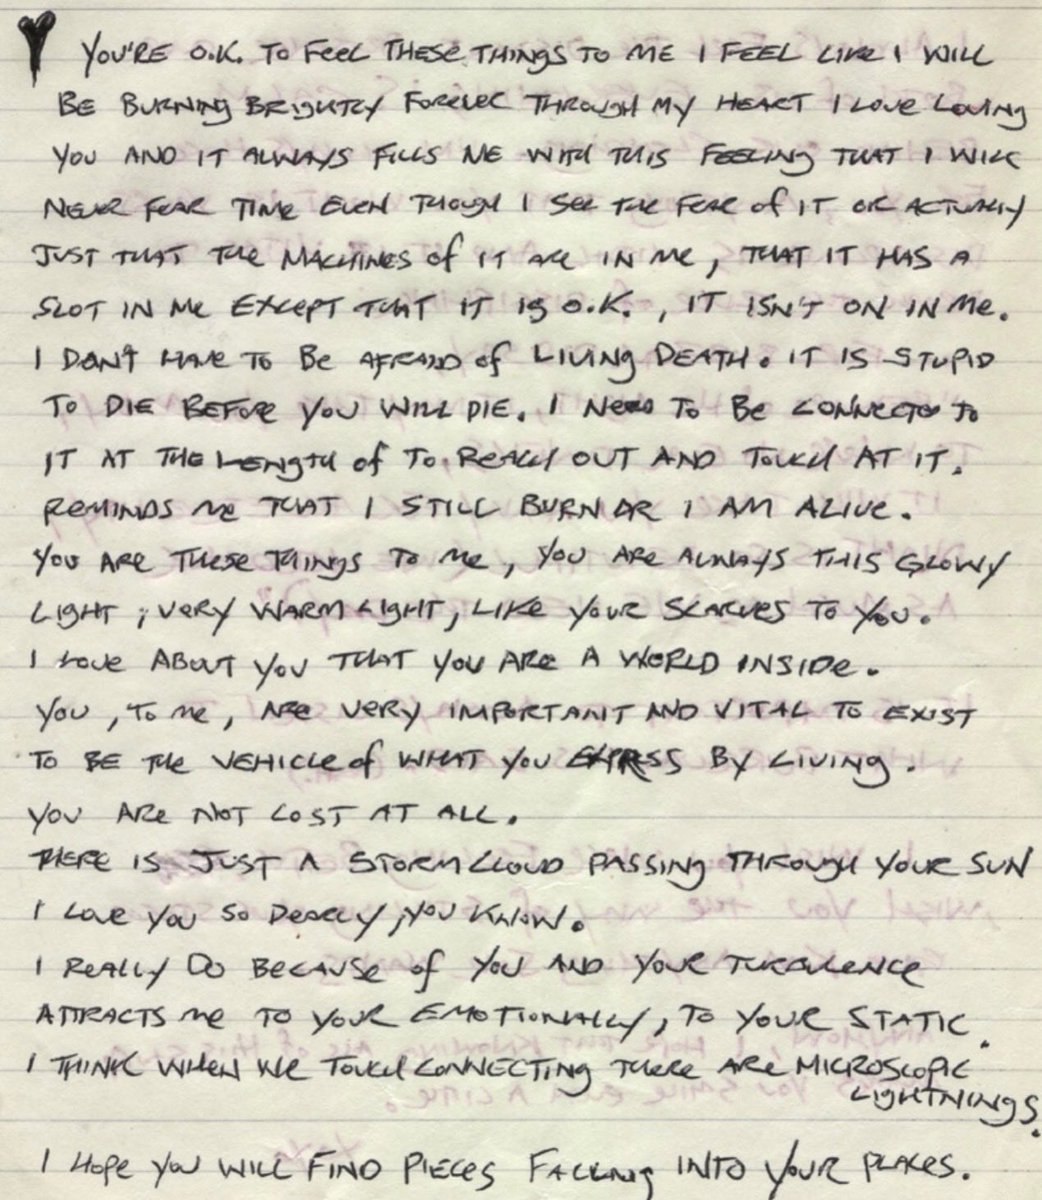 YOU'RE O.K. TO FEEL THESE THINGS TO ME I FEEL LIKE I WILL
BE BURNING BRIGHTLY FOREVER THROUGH MY HEART I LOVE LOVING
YOU AND IT ALWAYS FILLS ME WITH THIS FEELING THAT I WILL
NEVER FEAR TIME EVEN THOUGH I SEE THE FEAR OF IT OR ACTUALLY
JUST THAT THE MACHINES OF IT ARE IN ME, THAT IT HAS A
SLOT IN ME EXCEPT THAT IT IS O.K., IT ISN'T ON IN ME.
I DON'T HAVE TO BE AFRAID OF LIVING DEATH. IT IS STUPID
TO DIE BEFORE YOU WILL DIE. I NEED TO BE CONNECTED TO
IT AT THE LENGTH OF TO REACH OUT AND TOUCH AT IT.
REMINDS ME THAT I STILL BURN OR I AM ALIVE.
YOU ARE THESE THINGS TO ME, YOU ARE ALWAYS THIS GLOWY
LIGHT, VERY WARM LIGHT, LIKE YOUR SCARVES TO YOU.
I LOVE ABOUT YOU THAT YOU ARE A WORLD INSIDE.
YOU, TO ME, ARE VERY IMPORTANT AND VITAL TO EXIST
TO BE THE VEHICLE OF WHAT YOU EXPRESS BY LIVING.
YOU ARE NOT LOST AT ALL.
THERE IS JUST A STORMCLOUD PASSING THROUGH YOUR SUN
I LOVE YOU SO DEARLY, YOU KNOW.
I REALLY DO BECAUSE OF YOU AND YOUR TURBULENCE
ATTRACTS ME TO YOUR EMOTIONALLY, TO YOUR STATIC.
I THINK WHEN WE TOUCH CONNECTING THERE ARE MICROSCOPIC
LIGHTNINGS.
I HOPE YOU WILL FIND PIECES FALLING INTO YOUR PLACES.